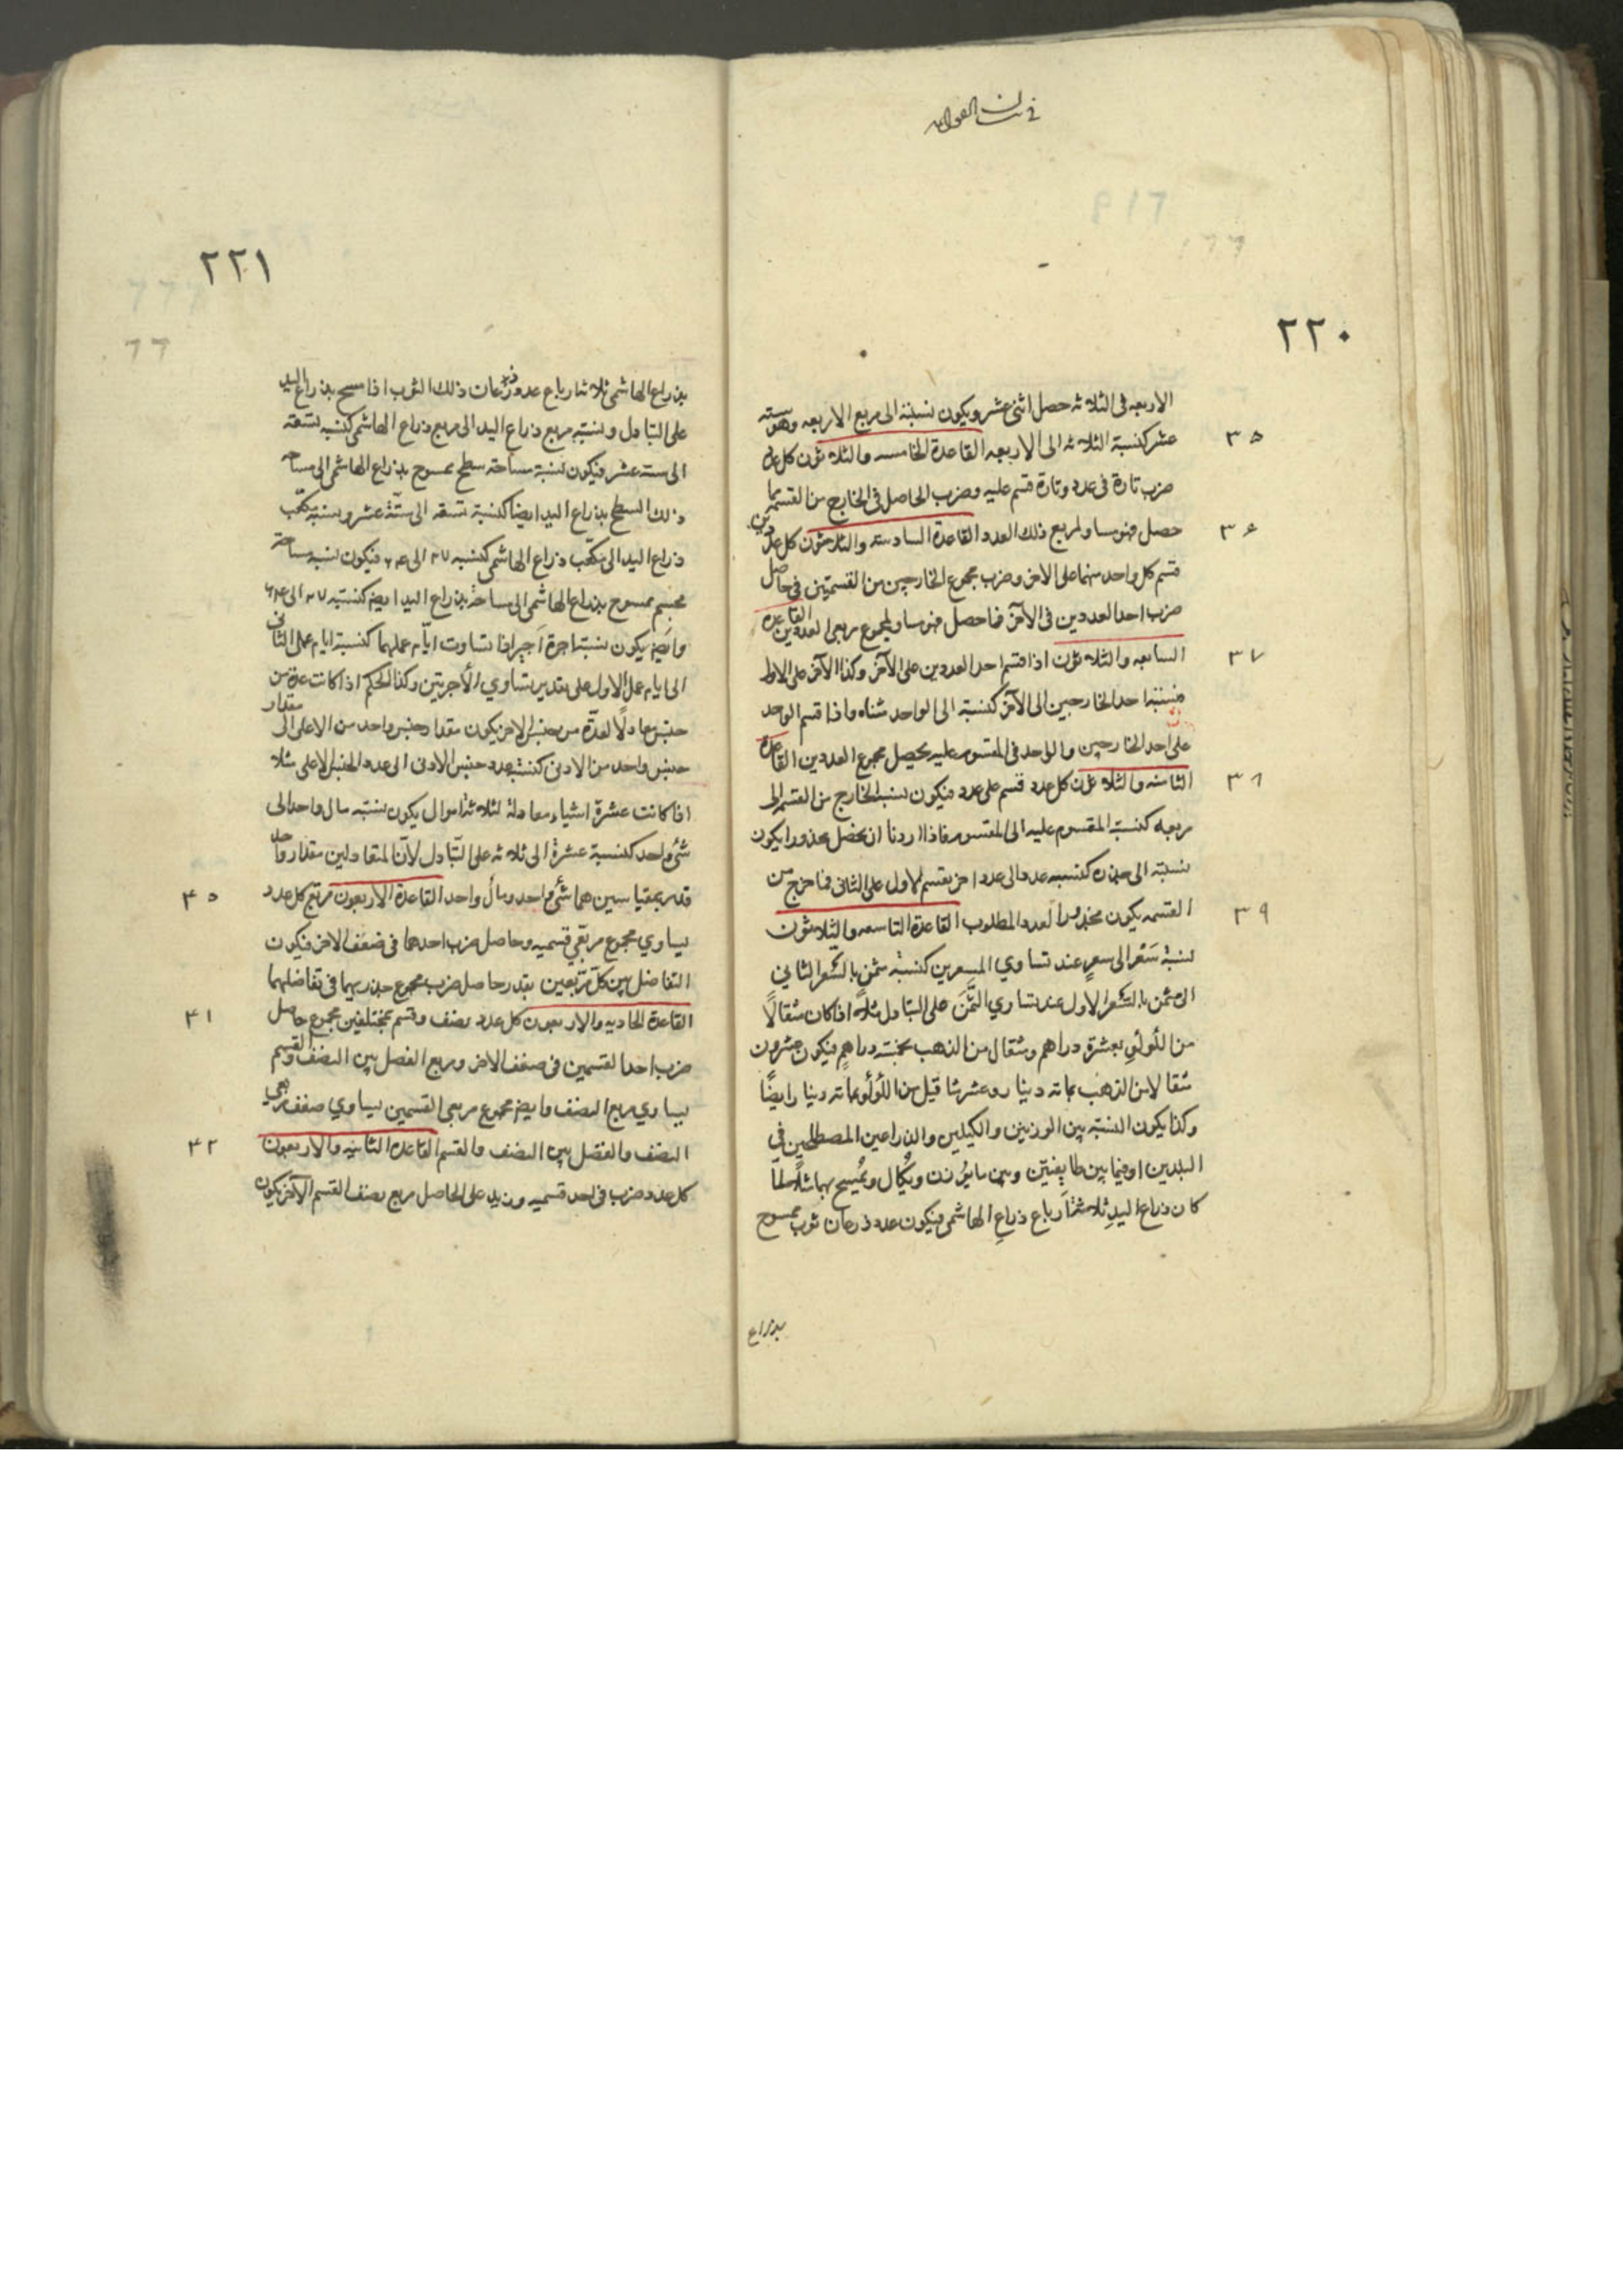 في بيان القواعد
٢٢٠
الاربعه فى الثلاثه حصل اثنى عشر ويكون نسبته الى مربع الاربعه وهو سته
عشر كنسبة الثلاثه الى الاربعه القاعدة الخامسه والثلاثون كل عدد ٣٥
ضرب تارة فى عدد وتارة قسم عليه وضرب الحاصل فى الخارج من القسمه فما
حصل فهو مساو لمربع ذلك العدد القاعدة السادسته والثلاثون كل عددين ٣٦
قسم كل واحد منهما على الاخر وضرب مجموع الخارجين من القسمتين فى حاصل
ضرب احد العددين فى الآخر فما حصل فهو مساو لمجموع مربعى العددين القاعدة
السابعه والثلاثون اذا قسم احد العددين على الآخر وكذا الآخر على الاول ٣٧
فنسبة احد الخارجين الى الآخر كنسبته الى الواحد مثناه واذا قسم الواحد
على احد الخارجين والواحد فى المقسوم عليه يحصل مجموع العددين القاعدة
الثامنه والثلاثون كل عدد قسم على عدد فيكون نسبة الخارج من القسمه الى ٣٨
مربعه كنسبة المقسوم عليه الى المقسوم فاذا اردنا ان نحصل مجذورا يكون
نسبته الى جذره كنسبه عدد الى عدد اخر نقسم الاول على الثانى فما خرج من
القسمه يكون مجذورا لعدد المطلوب القاعدة التاسعه والثلاثون ٣٩
نسبة سَعْر الى سعرٍ عند تساوي المسعرين كنسبة مثمن بالسّعر الثاني
الى مثمن بالسّعر الاول عند تساوي الثَّمَن على التبادل مثلاً اذا كان مثقالاً
من اللُؤلُؤِ بعشرة دراهم ومثقال من الذهب بخمسة دراهم فيكون عشرون
مثقالا من الذهب بماته دينار وعشر مثاقيل من اللُؤلُؤ بماته دينار ايضًا
وكذا يكون النسبته بين الوزنين والكيلين والذراعين المصطلحين في
البلدين او فيما بين طايفتين وبين ما يُوزن ويُكال ويُمسح بهما مثلاً لمّا
كان ذراع اليدِ ثلاثة اَرباع ذراعِ الهاشمى فيكون عدد ذرعان ثوب ممسوح
بذراع
٢٢١
بذراع الهاشمى ثلاثة ارباع عدد ذرعان ذلك الثوب اذا مسح بذراع اليد
على التبادل ونسبة مربع ذراع اليد الى مربع ذراع الهاشمى كنسبة تسعة
الى ستة عشر فيكون نسبة مساحة سطح ممسوح بذراع الهاشمى الى مساحه
ذلك السطح بذراع اليد ايضا كنسبة تسعه الى ستّة عشر ونسبة مكعّب
ذراع اليد الى مكعّب ذراع الهاشمى كنسبه ٢٧ الى ٦٤ فيكون نسبه مساحة
مجسم ممسوح بذراع الهاشمى الى مساحة بذراع اليد ايضا كنسبته ٢٧ الى ٦٤
وايضا يكون نسبة اجرة اَجير اذا تساوت ايّام عملهما كنسبة ايام عمل الثانى
الى ايام عمل الاول على تقدير تساوي الأجرتين وكذا الحكم اذا كانت عدة من
جنس معادلًا لعدّة من جنس الاخر يكون مقدار جنس واحد من الاعلى الى مقدار
جنس واحد من الادنى كنسبة عدد جنس الادنى الى عدد الجنس الاعلى مثلا
اذا كانت عشرة اشياء معادلة لثلاثة اموال يكون نسبة مال واحد الى
شئ واحد كنسبة عشرة الى ثلاثه على التّبادل لأنّ المتعادلين مقدار واحد
قدر بمقياسين هما شئ واحد ومال واحد القاعدة الاربعون مربّع كل عدد ٤٠
يساوي مجموع مربّعي قسميه وحاصل ضرب احدهما فى ضعف الاخر فيكون
التفاضل بين كلّ مربّعين بقدر حاصل ضرب مجموع جذريهما فى تفاضلهما
القاعدة الحاديه والاربعون كل عدد نصف وقسم بمختلفين مجموع حاصل ٤١
ضرب احد القسمين فى ضعف الاخر ومربع الفضل بين النصف والقسم
يساوي مربع النصف وايضا مجموع مربعى القسمين يساوي ضعف مربعى
النصف والفضل بين النصف والقسم القاعدة الثانيه والاربعون ٤٢
كل عدد ضرب فى احد قسميه وزيد على الحاصل مربع نصف القسم الآخر يكون